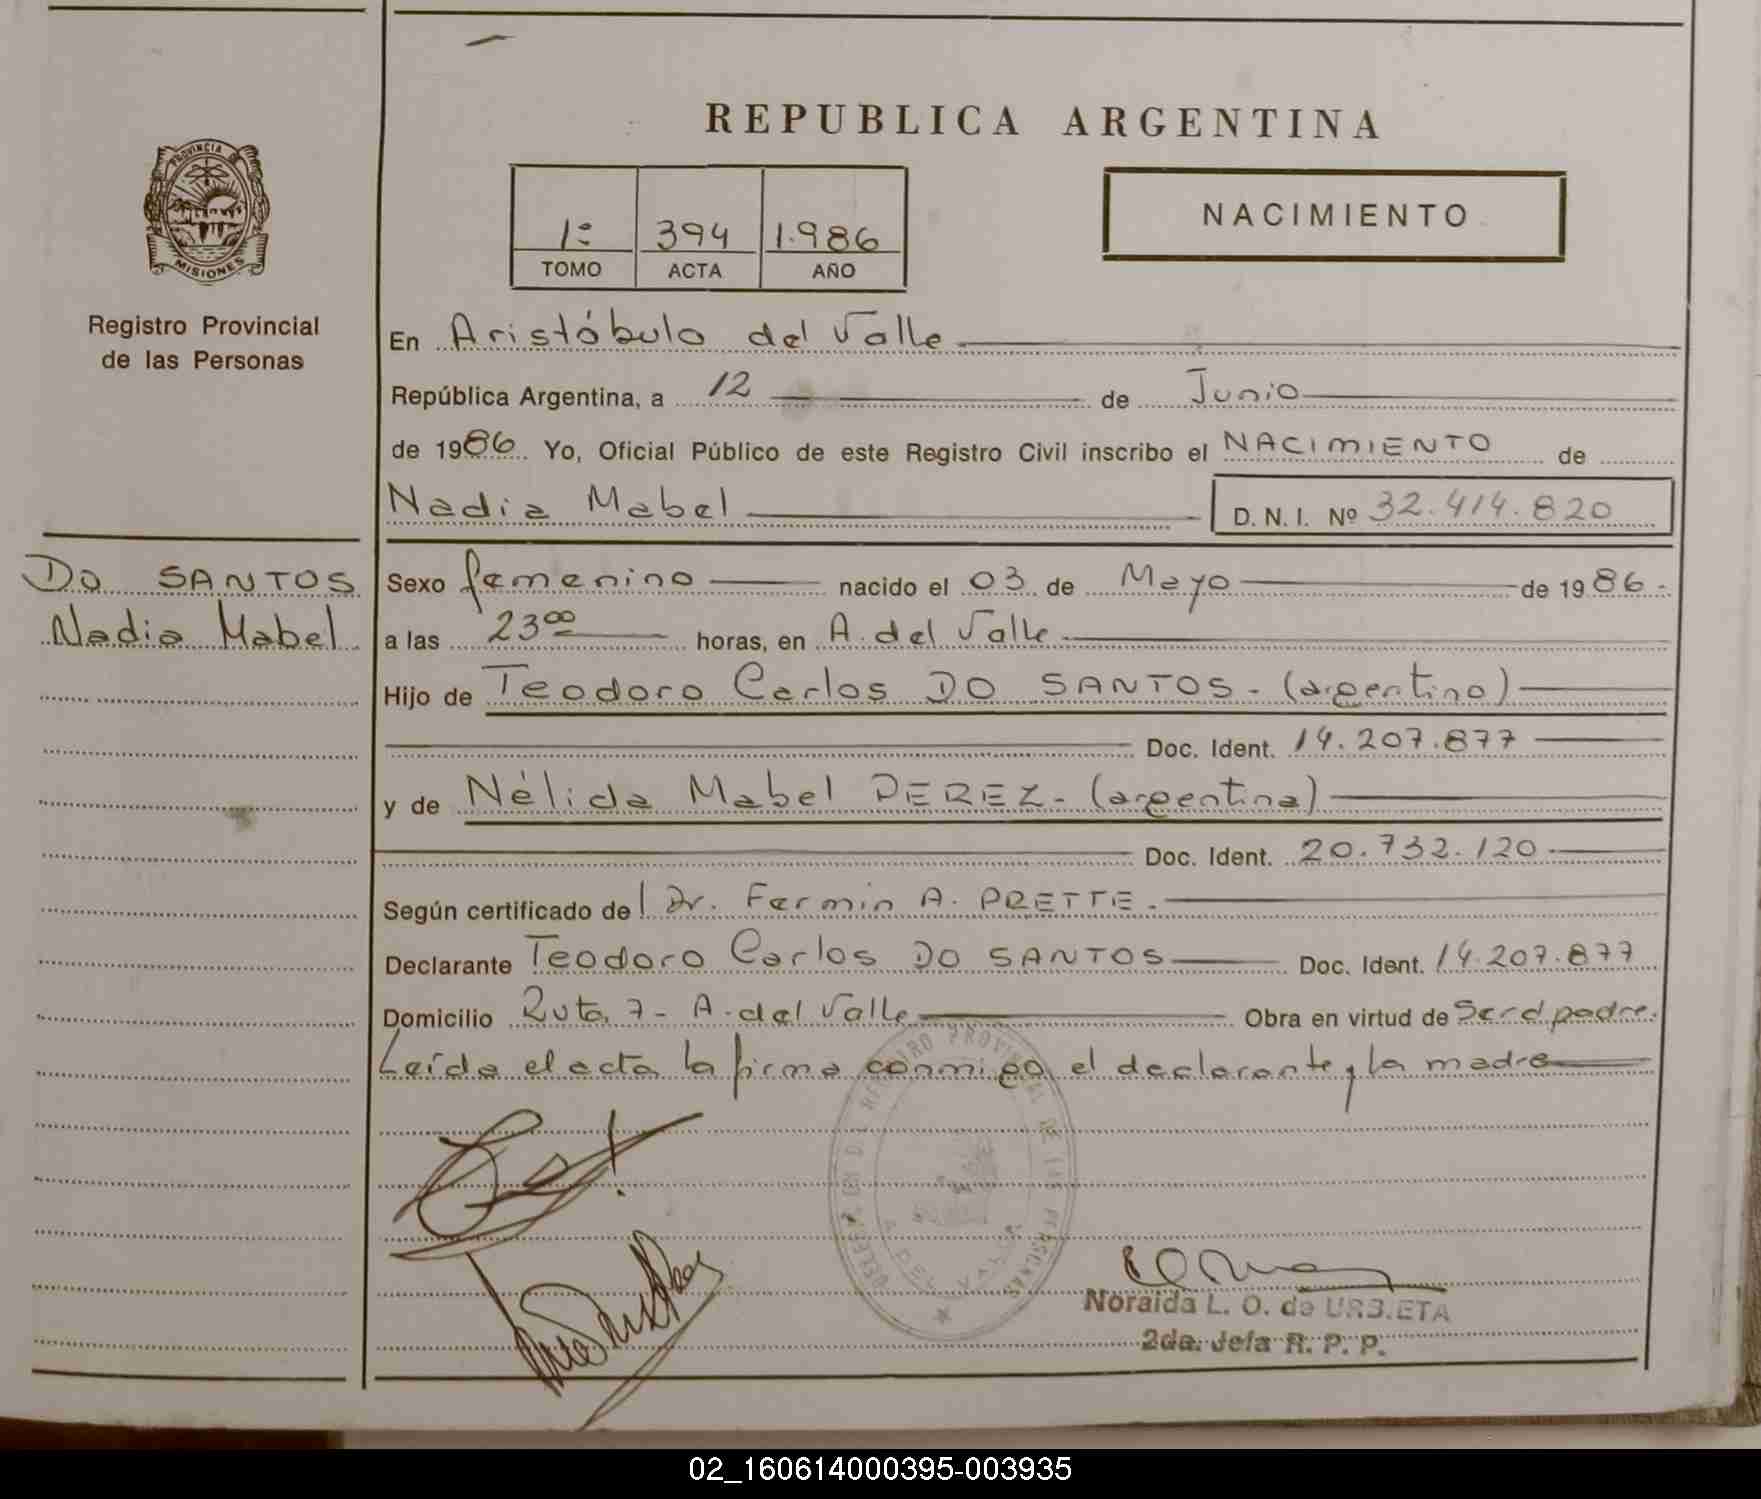 REPUBLICA ARGENTINA
PROVINCIA DE
MISIONES
Registro Provincial
de las Personas
1º 394 1.986
TOMO ACTA AÑO
NACIMIENTO
En Aristóbulo del Valle
República Argentina, a 12 de Junio
de 1986. Yo, Oficial Público de este Registro Civil inscribo el NACIMIENTO de
Nadia Mabel D. N. I. Nº 32.414.820
DO SANTOS
Nadia Mabel
Sexo femenino nacido el 03 de Mayo de 1986.-
a las 23⁰⁰ horas, en A. del Valle
Hijo de Teodoro Carlos DO SANTOS - (argentino)
Doc. Ident. 14.207.877
y de Nélida Mabel PEREZ - (argentina)
Doc. Ident. 20.732.120
Según certificado del Dr. Fermin A. PRETTE.-
Declarante Teodoro Carlos DO SANTOS Doc. Ident. 14.207.877
Domicilio Ruta 7 - A. del Valle Obra en virtud de Ser el padre.
Leída el acta la firma conmigo el declarante y la madre
REGISTRO PROVINCIAL DE LAS PERSONAS
A. DEL VALLE
Noraida L. O. de URBIETA
2da. Jefa R. P. P.
02_160614000395-003935